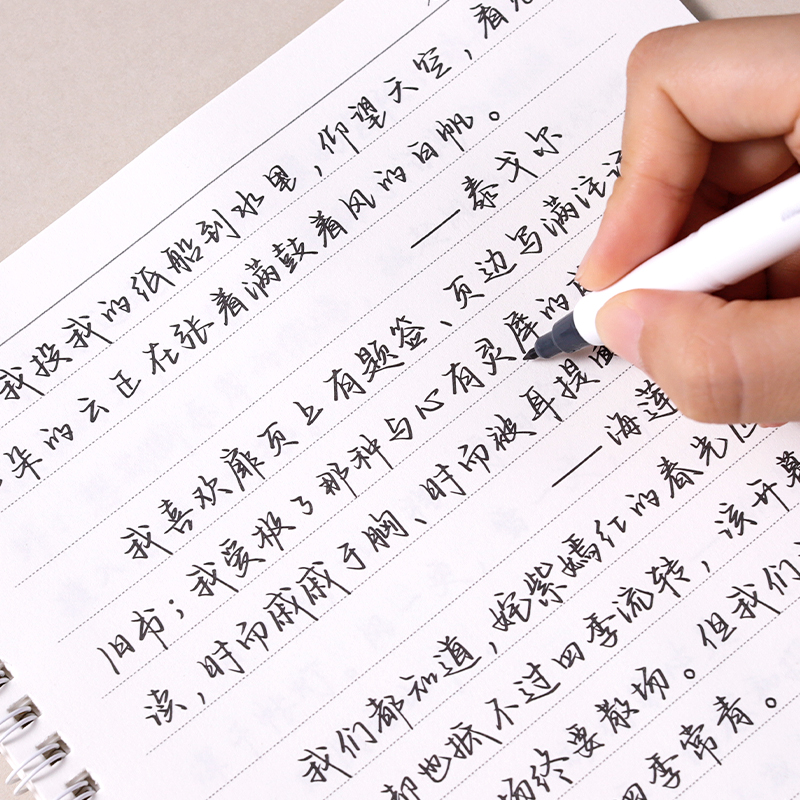 我投我的纸船到水里，仰望天空，看见
朵的云正在张着满鼓着风的白帆。
——泰戈尔
我喜欢扉页上有题签、页边写满注
旧书；我爱极了那种与心有灵犀的
读，时而戚戚于胸、时而被耳提面
——海莲
我们都知道，姹紫嫣红的春光
却也抵不过四季流转，该开幕
场终要散场。但我们
四季常青。